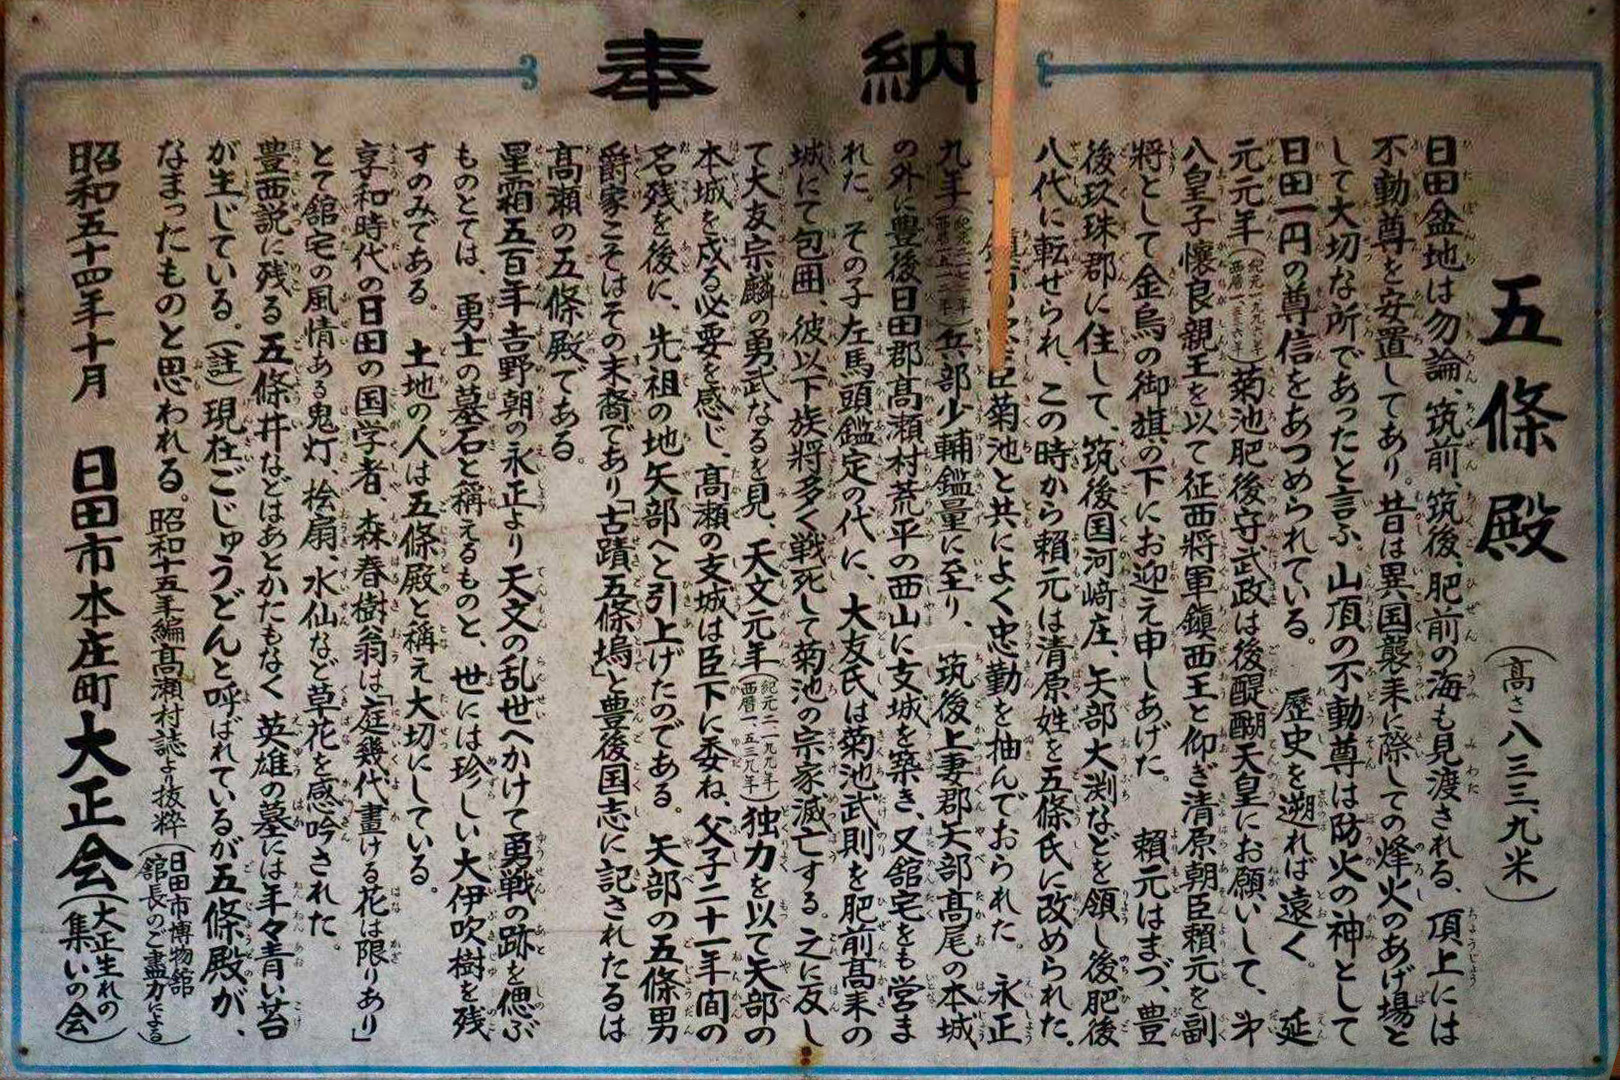 奉納
五條殿（高さ八三三、九米）
日田盆地は勿論、筑前、筑後、肥前の海も見渡される、頂上には
不動尊を安置してあり。昔は異国襲来に際しての烽火のあげ場と
して大切な所であったと言ふ。山頂の不動尊は防火の神として
日田一円の尊信をあつめられている。歴史を遡れば遠く。延
元元年（紀元一九九七年西暦一三三六年）菊池肥後守武政は後醍醐天皇にお願いして、才
八皇子懷良親王を以て征西將軍鎭西王と仰ぎ清原朝臣頼元を副
將として金烏の御旗の下にお迎え申しあげた。頼元はまづ、豊
後玖珠郡に住して、筑後国河﨑庄、矢部大渕などを領し後肥後
八代に転ぜられ、この時から頼元は清原姓を五條氏に改められた。
臣菊池と共によく忠勤を抽んでおられた。永正
九年兵部少輔鑑量に至り、筑後上妻郡矢部髙尾の本城
の外に豊後日田郡髙瀬村荒平の西山に支城を築き、又舘宅をも営ま
れた。その子左馬頭鑑定の代に、大友氏は菊池武則を肥前髙来の
城にて包囲、彼以下族將多く戦死して菊池の宗家滅亡する。之に反し
て大友宗麟の勇武なるを見、天文元年（紀元二一九九年西暦一五三九年）独力を以て矢部の
本城を戍る必要を感じ、髙瀬の支城は臣下に委ね、父子二十一年間の
名残を後に、先祖の地矢部へと引上げたのである。矢部の五條男
爵家こそはその末裔であり「古蹟五條塢」と豊後国志に記されたるは
髙瀬の五條殿である。
星霜五百年吉野朝の永正より天文の乱世へかけて勇戦の跡を偲ぶ
ものとては、勇士の墓石と稱えるものと、世には珍しい大伊吹樹を残
すのみである。土地の人は五條殿と稱え大切にしている。
享和時代の日田の国学者、森春樹翁は「庭幾代畫ける花は限りあり」
とて舘宅の風情ある鬼灯、桧扇、水仙など草花を感吟された。
豊西説に残る五條井などはあとかたもなく英雄の墓には年々青い苔
が生じている。（註）現在ごじゅうどんと呼ばれているが五條殿が、
なまったものと思われる。昭和十五年編髙瀬村誌より抜粋（日田市博物舘舘長のご盡力による）
昭和五十四年十月　日田市本庄町大正会（大正生れの集いの会）